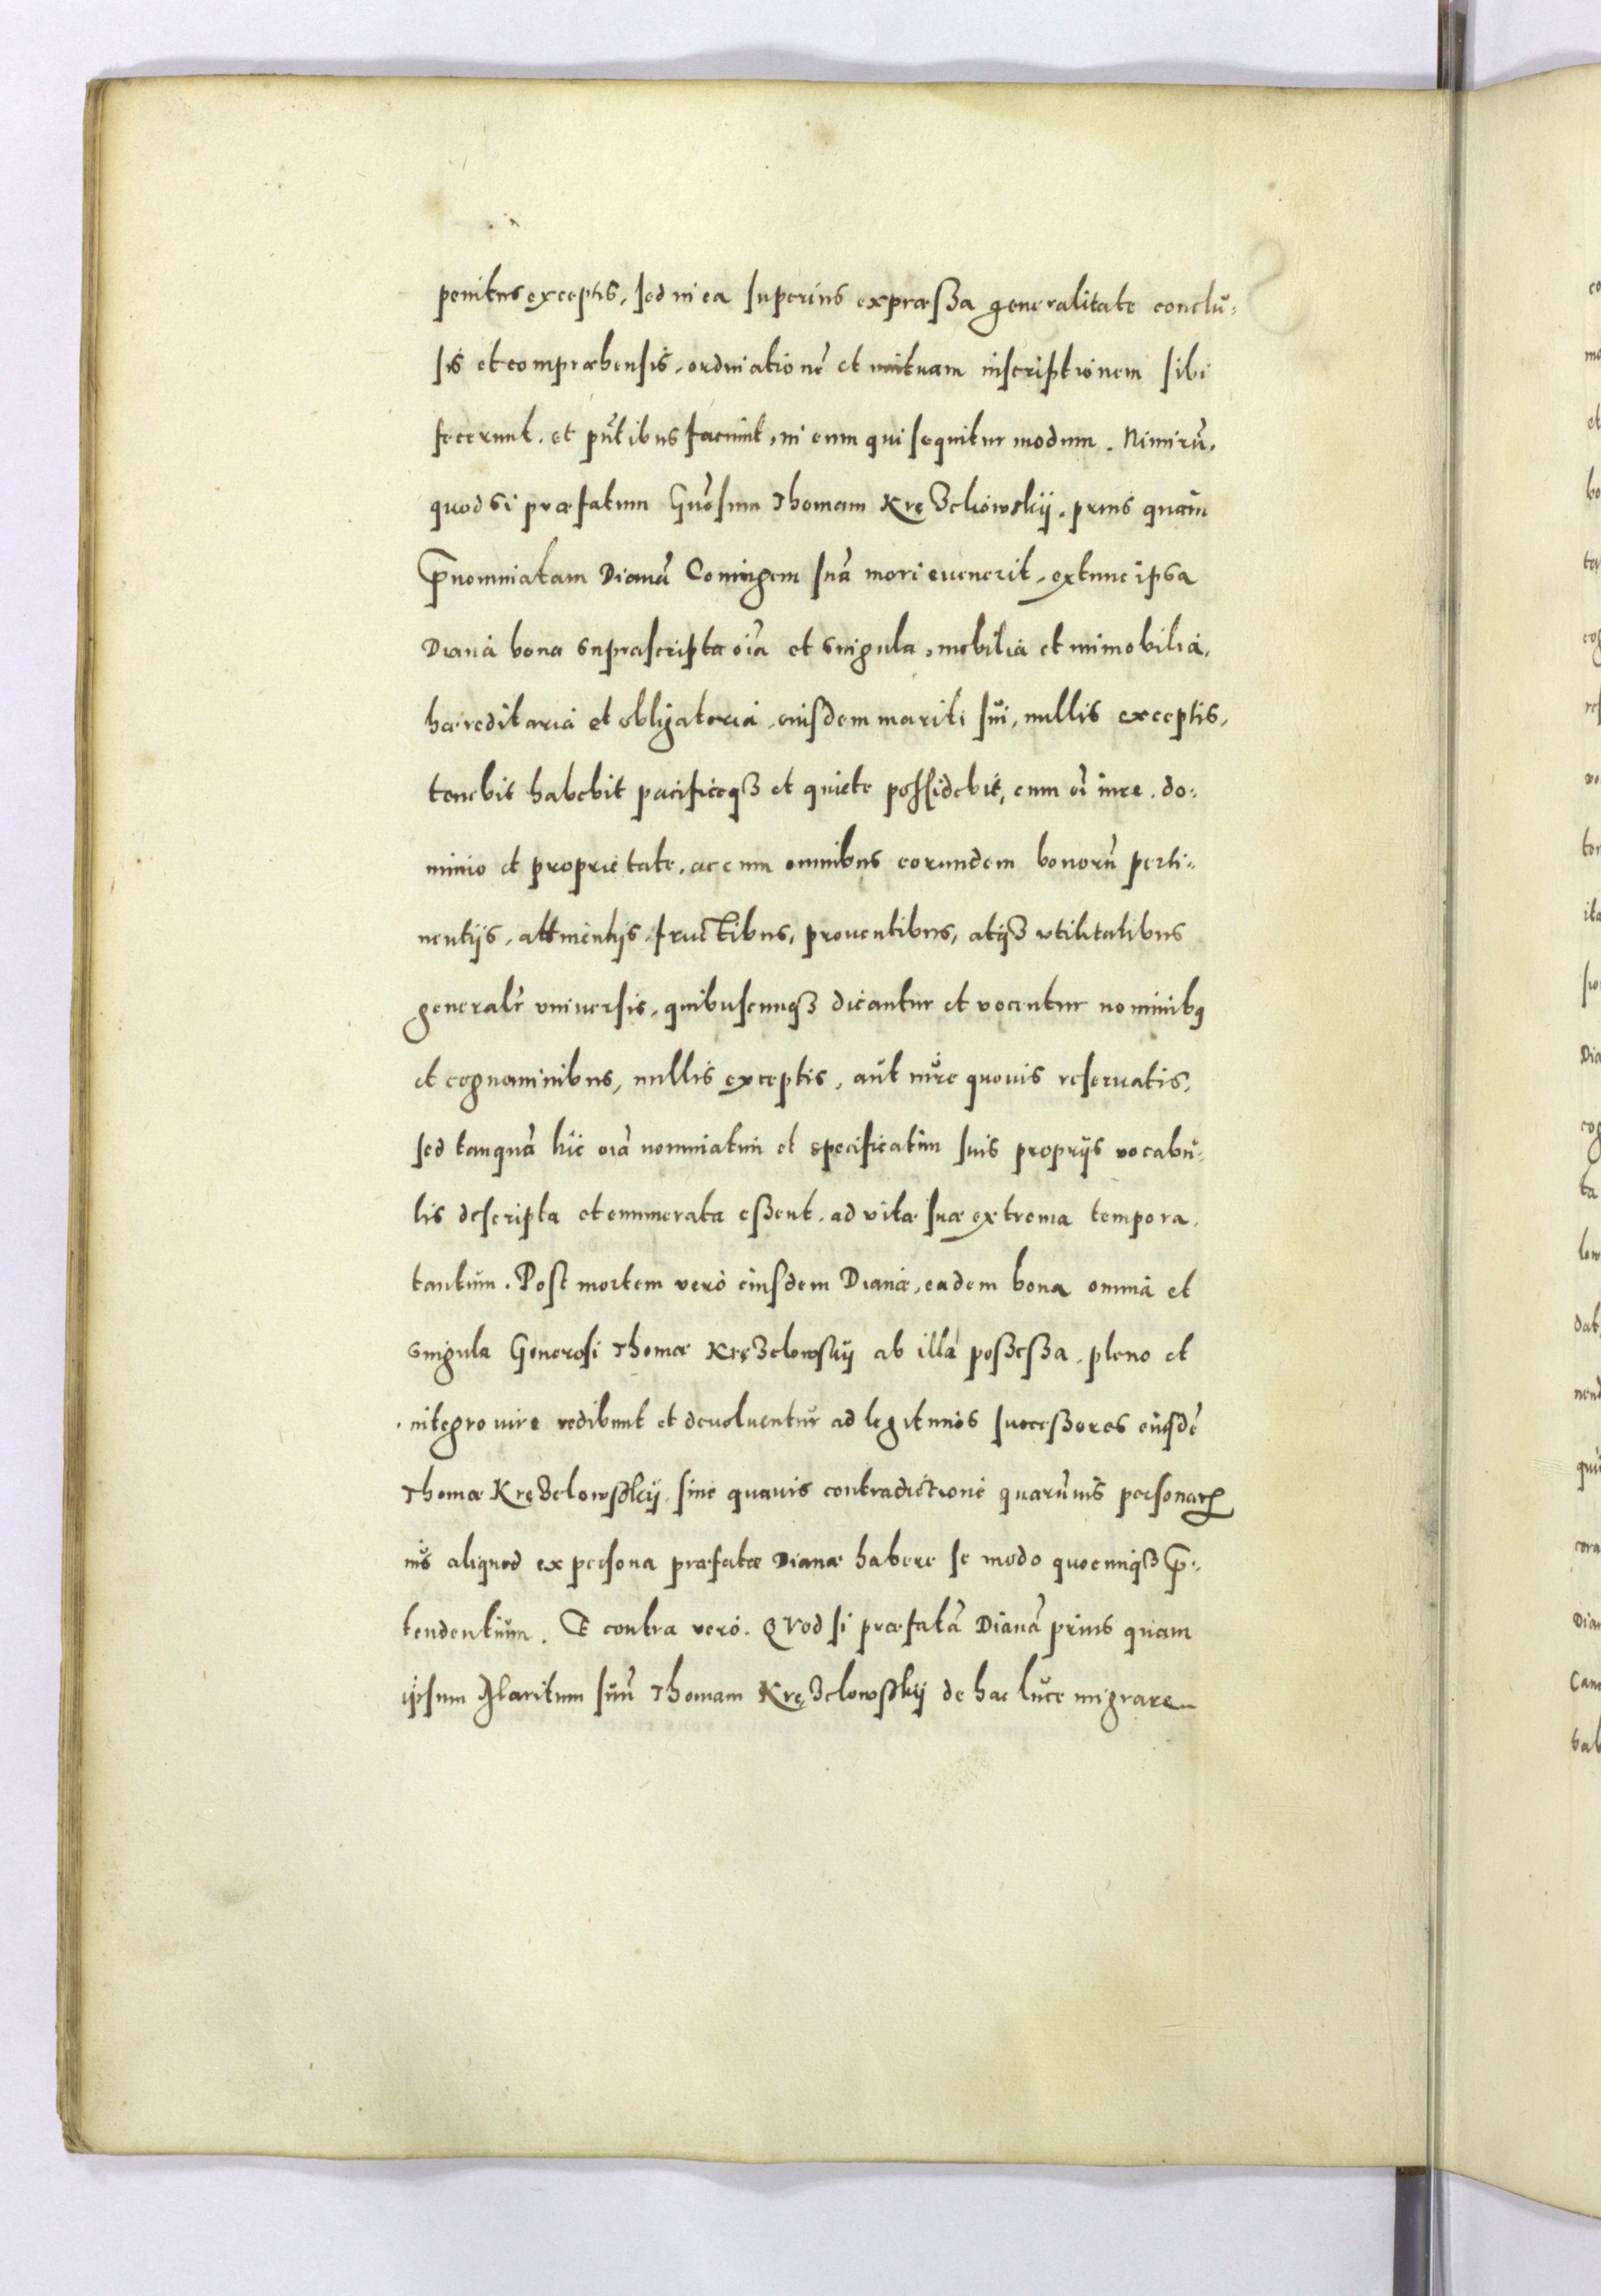 penitus exceptis, sed in ea superius expræssa generalitate conclu-
sis et compræhensis, ordinationẽ et mutuam inscriptionem sibi
fecerunt, et pñtibus faciunt, in eum qui sequitur modum. Nimirũ,
quod si præfatum Gñosum Thomam Kręzelowskij, prius quam
p̃nominatam Dianã Coniugem suã mori euenerit, extunc ipsa
Diana bona suprascripta oĩa et singula, mobilia et immobilia,
hæreditaria et obligatoria, eiusdem mariti sui, nullis exceptis,
tenebit habebit pacificeqȝ et quiete possidebit, cum oĩ iure, do-
minio et proprietate, ac cum omnibus eorundem bonorũ perti-
nentijs, attinentijs, fructibus, prouentibus, alijsȝ vtilitatibus
generalr̃ vniuersis, quibuscunqȝ dicantur et vocentur nominibꝰ
et cognominibus, nullis exceptis, aut iure quouis reseruatis,
sed tanquã hic oĩa nominatim et specificatim suis proprijs vocabu-
lis descripta et enumerata essent, ad vitæ suæ extrema tempora
tantum. Post mortem verò eiusdem Dianæ, eadem bona omnia et
singula Generosi Thomæ Kręzelowskij ab illa possessa, pleno et
integro iure redibunt et deuoluentur ad legitimos successores eiusdẽ
Thomæ Kręzelowskij, sine quauis contradictione quarumuis personarꝝ
ius aliquod ex persona præfatæ Dianæ habere se modo quocunqȝ p̃-
tendentium. E contra verò. Quod si præfatã Dianã prius quam
ipsum Maritum suũ Thomam Kręzelowskij de hac luce migrare